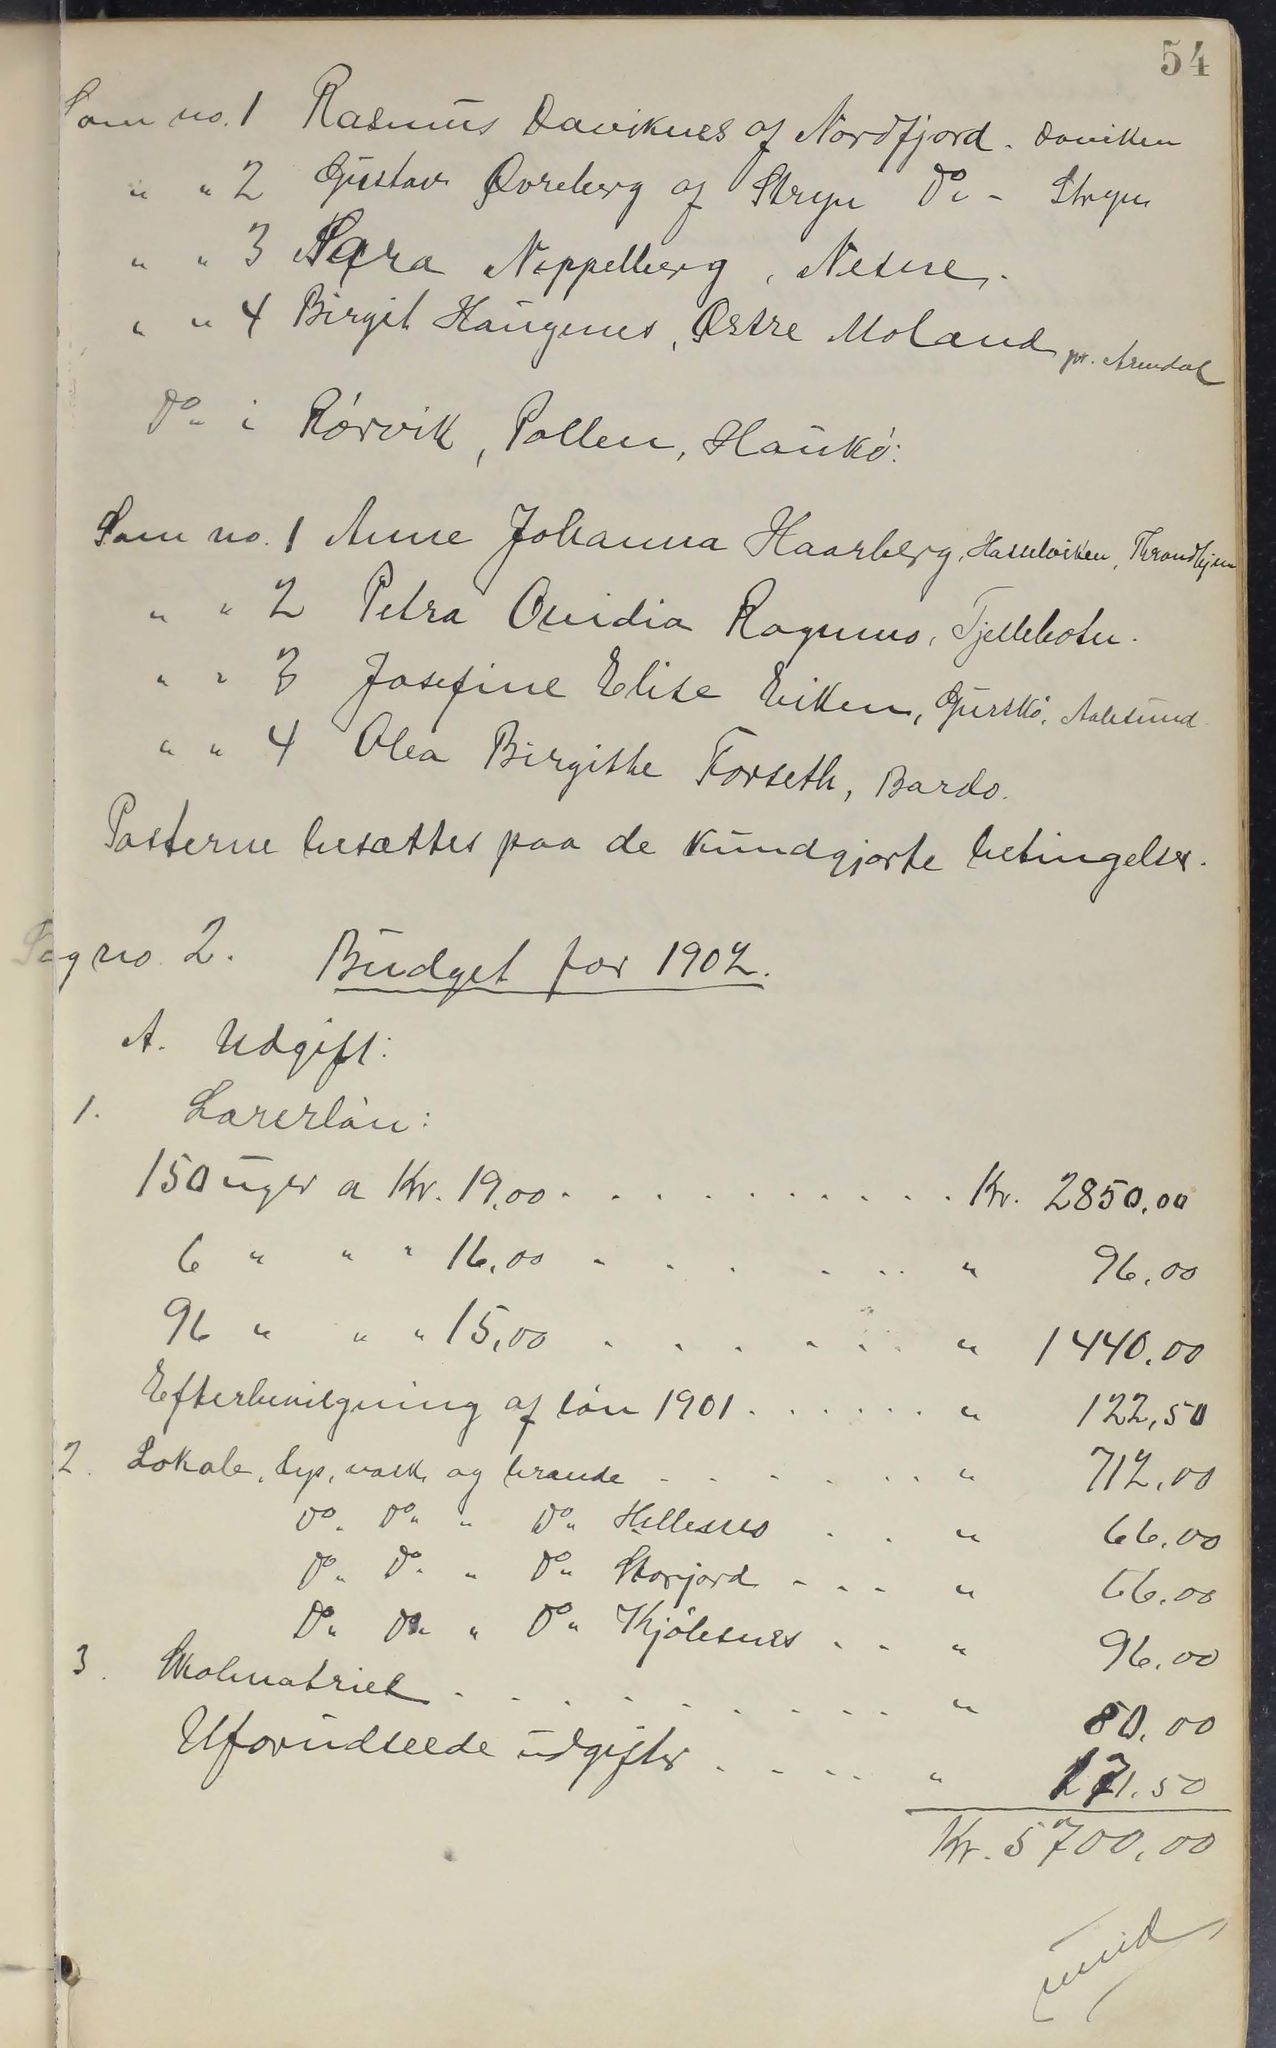 54
Som no. 1 Rasmus Daviknes af Nordfjord. Daviken
" " 2 Gustav Øvreberg af Stryn Do - Stryn
" " 3 Sara Neppelberg, Nesne.
" " 4 Birgit Haugenes, Østre Moland pr. Arendal
Do i Rørvik, Pollen, Haukø:
Som no. 1 Anne Johanna Haarberg, Hasselviken, Throndhjem
" " 2 Petra Ovidia Rognmo, Fjeldbotn.
" " 3 Josefine Elise Eiken, Gurskø, Aalesund.
" " 4 Olea Birgitte Forseth, Bardo.
Posterne besættes paa de kundgjorte betingelser.
Sag no 2. Budget for 1902.
A. Udgift:
1. Lærerløn:
150 uger a Kr. 19,00 . . . . . . . . . . Kr. 2850,00
6 " " " 16,00 . . . . . . " 96,00
96 " " " 15,00 . . . . . . " 1440,00
Efterbevilgning af løn 1901 . . . . . . " 122,50
2. Lokale, lys, vask og brænde . . . . . . " 712,00
Do. Do " Do Hellesnes . . " 66,00
Do. Do " Do Storjord . . . " 66,00
Do. Do " Do Kjølesnes . . " 96,00
3. Skolmatriel . . . . . . . . . " 80,00
Uforudseede udgifter . . . . " 171,50
Kr. 5700,00